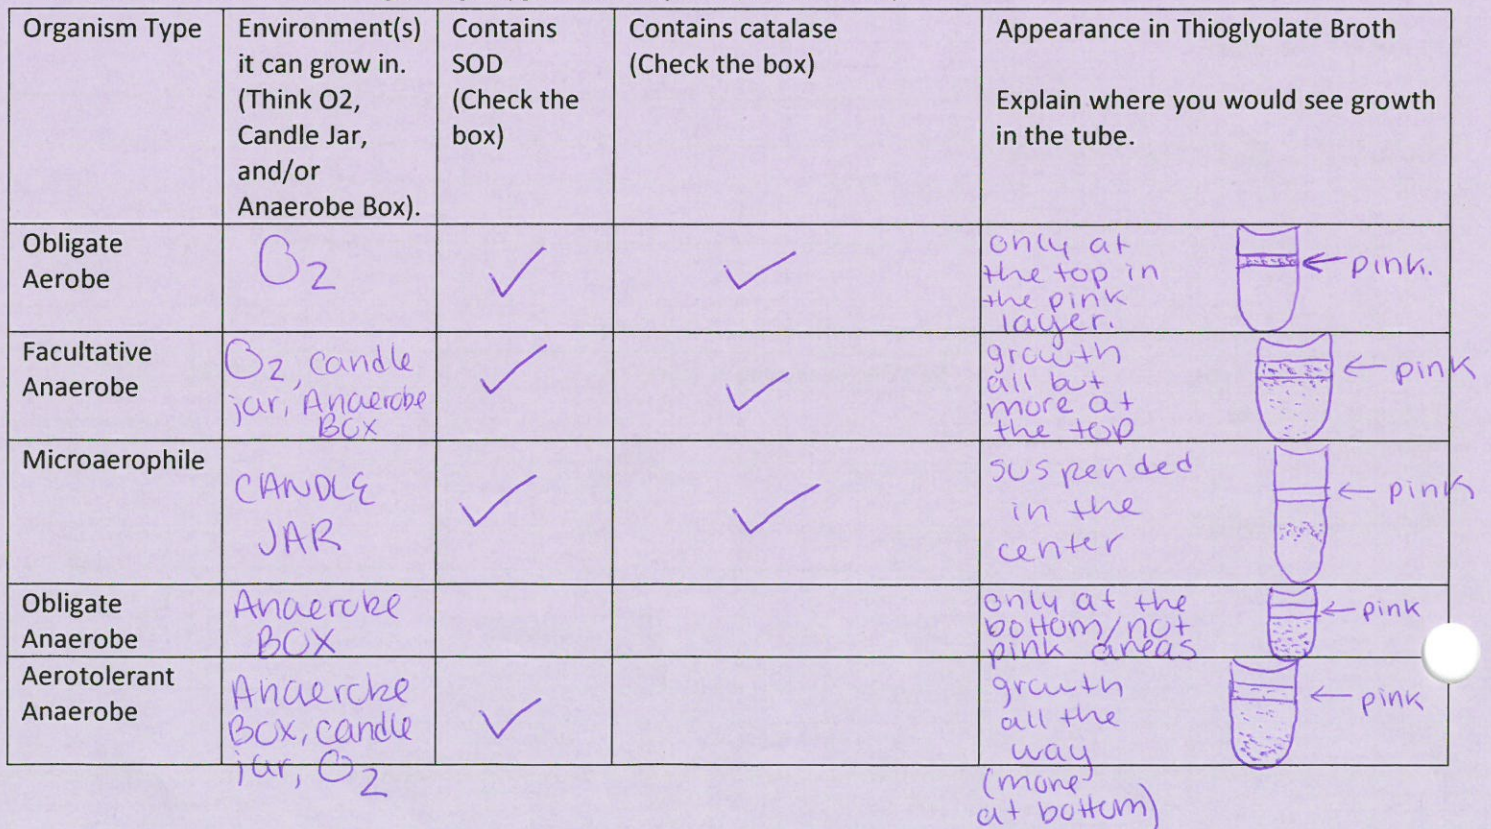 Organism Type
Environment(s)
it can grow in.
(Think O2,
Candle Jar,
and/or
Anaerobe Box).
Contains
SOD
(Check the
box)
Contains catalase
(Check the box)
Appearance in Thioglyolate Broth
Explain where you would see growth
in the tube.
Obligate
Aerobe
O2
✓
✓
only at
the top in
the pink
layer.
← pink.
Facultative
Anaerobe
O2, candle
jar, Anaerobe
BOX
✓
✓
growth
all but
more at
the top
← pink
Microaerophile
CANDLE
JAR
✓
✓
suspended
in the
center
← pink
Obligate
Anaerobe
Anaerobe
BOX
only at the
bottom/not
pink areas
← pink
Aerotolerant
Anaerobe
Anaerobe
BOX, candle
jar, O2
✓
growth
all the
way
(more
at bottom)
← pink